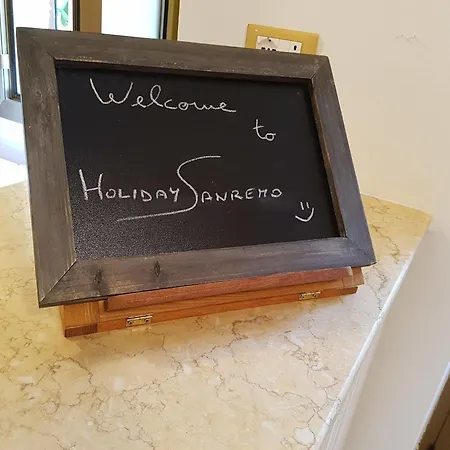 Welcome
to
HOLIDAY SANREMO :)